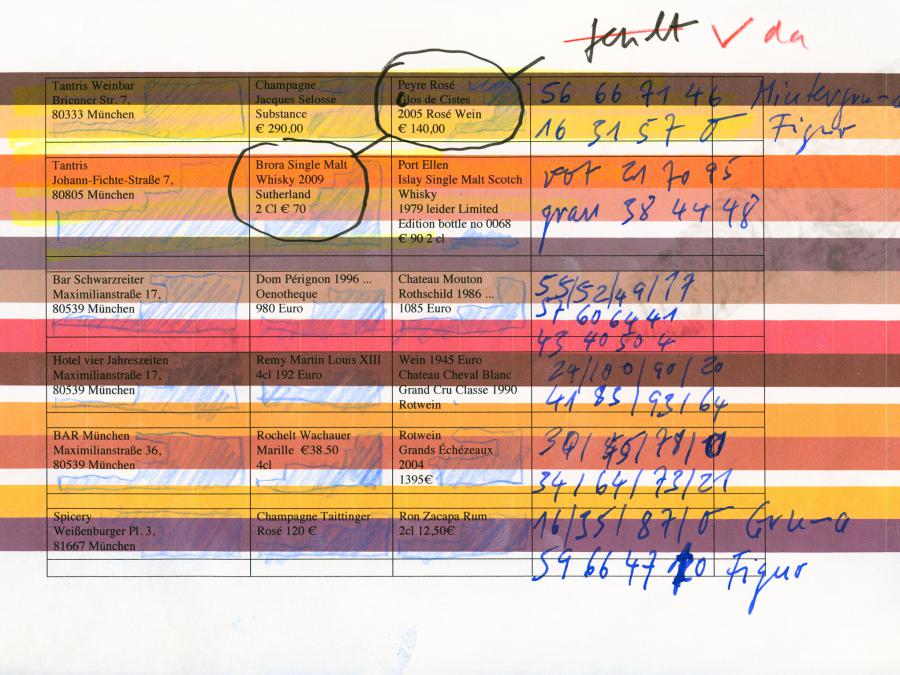 fehlt ✓ da
Tantris Weinbar
Brienner Str. 7,
80333 München
Champagne
Jacques Selosse
Substance
€ 290,00
Peyre Rosé
Clos de Cistes
2005 Rosé Wein
€ 140,00
56 66 71 46 Hintergrund
16 31 57 0 Figur
Tantris
Johann-Fichte-Straße 7,
80805 München
Brora Single Malt
Whisky 2009
Sutherland
2 Cl € 70
Port Ellen
Islay Single Malt Scotch
Whisky
1979 leider Limited
Edition bottle no 0068
€ 90 2 cl
rot 21 70 95
grau 38 44 48
Bar Schwarzreiter
Maximilianstraße 17,
80539 München
Dom Pérignon 1996 ...
Oenotheque
980 Euro
Chateau Mouton
Rothschild 1986 ...
1085 Euro
55/52/49/17
57 60 64 41
43 40 50 4
Hotel vier Jahreszeiten
Maximilianstraße 17,
80539 München
Remy Martin Louis XIII
4cl 192 Euro
Wein 1945 Euro
Chateau Cheval Blanc
Grand Cru Classe 1990
Rotwein
24/100/90/20
41 83/93/64
BAR München
Maximilianstraße 36,
80539 München
Rochelt Wachauer
Marille €38.50
4cl
Rotwein
Grands Échézeaux
2004
1395€
34/64/73/21
Spicery
Weißenburger Pl. 3,
81667 München
Champagne Taittinger
Rosé 120 €
Ron Zacapa Rum
2cl 12,50€
16/35/87/0 Grund
59 66 47 20 Figur